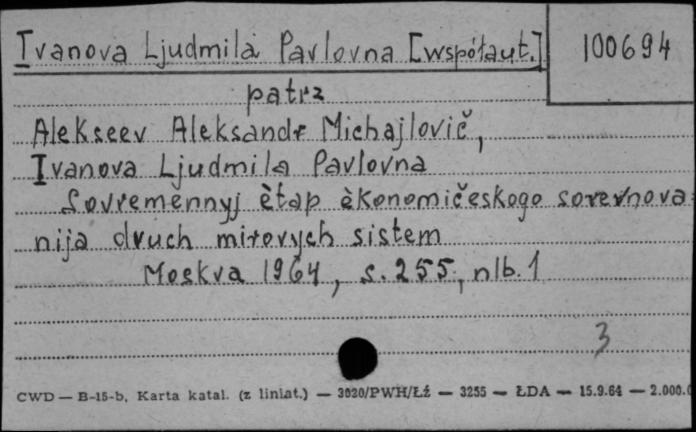 Ivanova Ljudmila Pavlovna [współaut.]
100694
patrz
Alekseev Aleksandr Michajlovič,
Ivanova Ljudmila Pavlovna
Sovremennyj ètap èkonomičeskogo sorevnova-
nija dvuch mirovych sistem
Moskva 1964, s. 255, nlb. 1
3
CWD — B-15-b, Karta katal. (z liniat.) — 3020/PWH/Łź — 3255 — ŁDA — 15.9.64 — 2.000.0